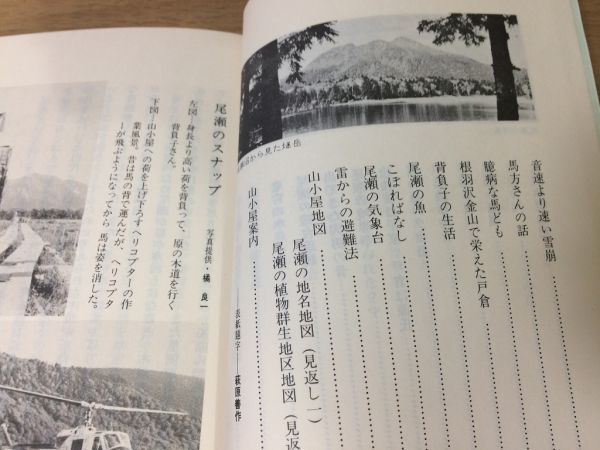 音速より速い雪崩
馬方さんの話
臆病な馬ども
根羽沢金山で栄えた戸倉
背負子の生活
尾瀬の魚
こぼればなし
尾瀬の気象台
雷からの避難法
山小屋地図
山小屋案内
尾瀬の地名地図(見返し一)
尾瀬の植物群生地区地図(見返
表紙題字──萩原善作
沼から見た燧岳
尾瀬のスナップ
写真提供・橘 良一
左図─身長より高い荷を背負って、原の木道を行く
背負子さん。
下図─山小屋への荷を上げ下ろすヘリコプターの作
業風景。昔は馬の背で運んだが、ヘリコプタ
ーが飛ぶようになってから 馬は姿を消した。